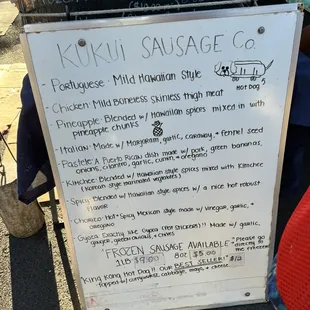 KUKUI SAUSAGE Co.
Portuguese - Mild Hawaiian Style
HOT DOG
-Chicken Mild Boneless Skinless thigh meat
Pineapple: Blended w/ Hawaiian spices mixed in with
pineapple chunks
-Italian: Made w/ Marjoram, garlic, caraway, & fennel seed
-Pastele: A Puerto Rican dish made w/ pork, green bananas,
onions, cilantro, garlic, cumin, & oregano
-Kimchee: Blended w/ Hawaiian style spices mixed with Kimchee
(Korean style marinated vegetables)
-Spicy: Blended w/ Hawaiian spices w/ a nice hot robust
flavor
-Chorizo: Hot & Spicy Mexican style made w/ vinegar, garlic,
& oregano
-Gyoza: Exactly like Gyoza (Pot Stickers)! Made w/ garlic,
ginger, green onions, & chives
*FROZEN SAUSAGE AVAILABLE*
1LB $9.00 8oz $5.00
*Please go
directly to
the freezer
*King Kong Hot Dog!!! Our BEST SELLER! $12
Topped w/ cabbage, mayo, & cheese